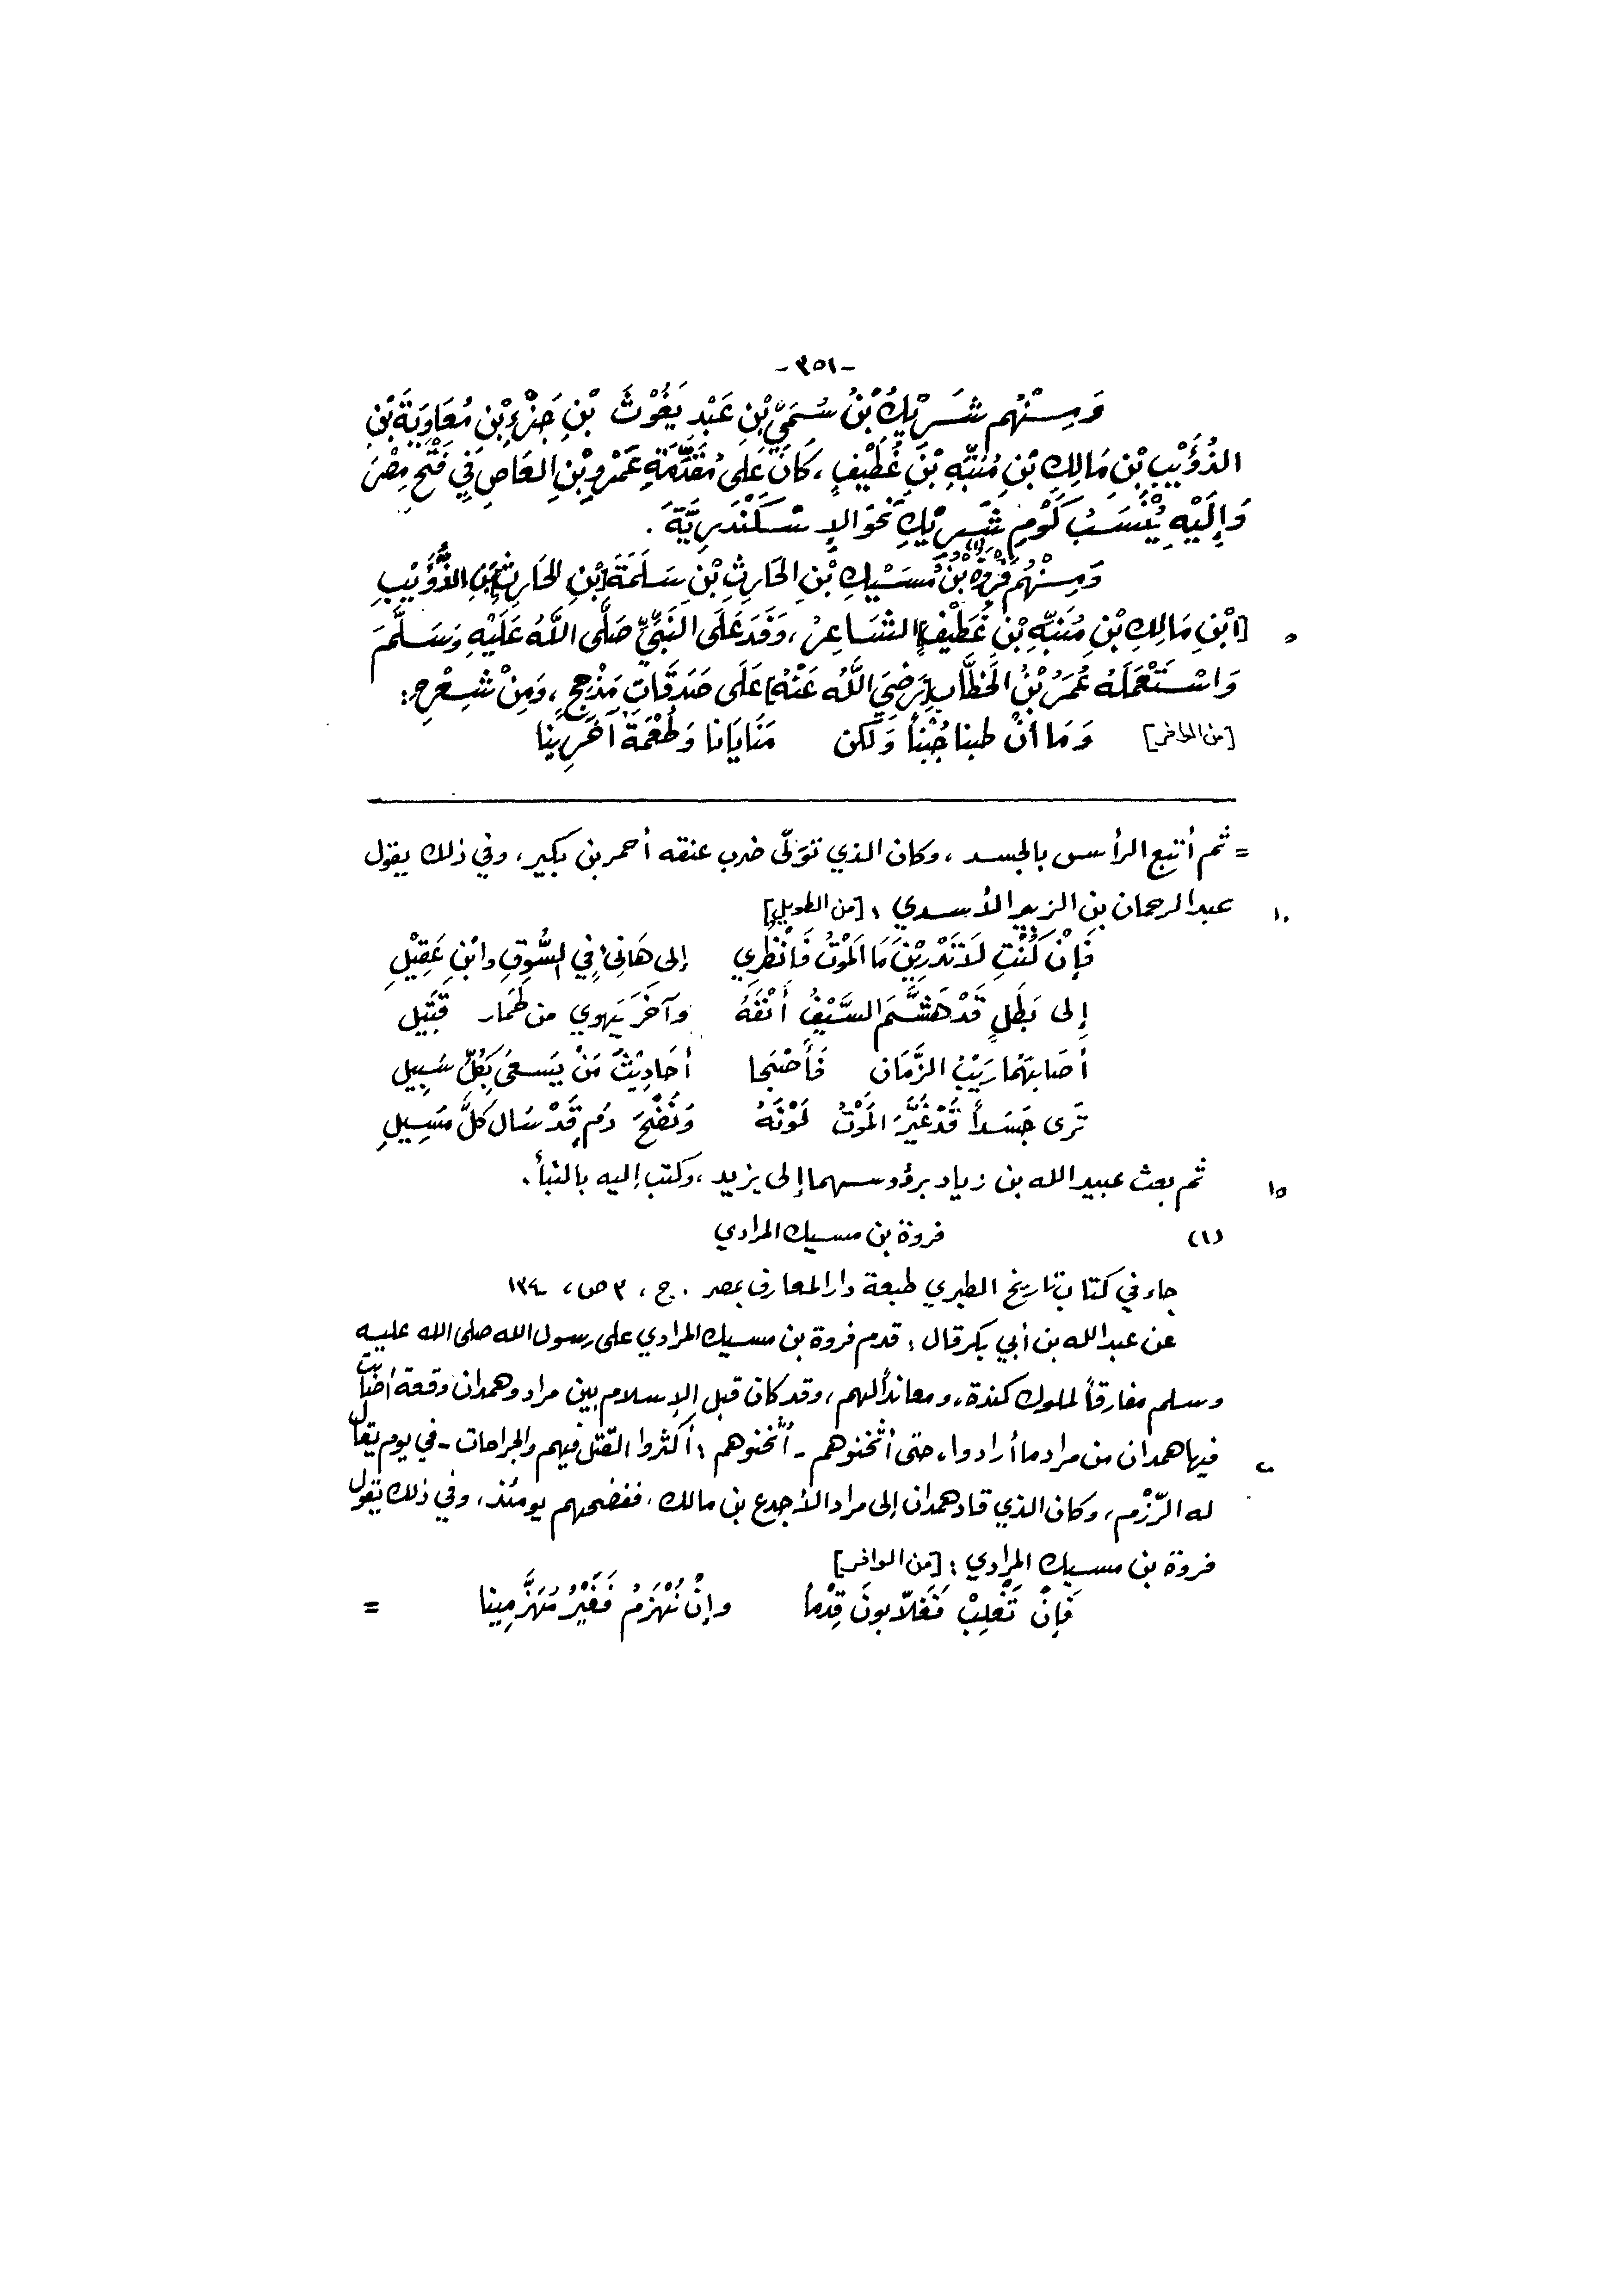 -٣٥١-
وَمِنْهُم شَرِيْكُ بْنُ سُمَيِّ بْنِ عَبْدِ يَغُوْثَ بْنِ جَزْءِ بْنِ مُعَاوِيَةَ بْنِ
الذُؤَيْبِ بْنِ مَالِكِ بْنِ مُنَبِّهِ بْنِ غُطَيْفٍ، كَانَ عَلَى مُقَدِّمَةِ عَمْرِو بْنِ العَاصِ فِي فَتْحِ مِصْرَ
وَإِلَيْهِ يُنْسَبُ كَوْمِ شَرِيْكِ نَحْوَ الإِسْكَنْدَرِيَّةَ.
وَمِنْهُم فَرْوَةُ بْنُ مُسَيْكِ بْنِ الحَارِثِ بْنِ سَلَمَةَ [بْنِ الحَارِثِ] بْنِ الذُّؤَيْبِ
٥ [ابْنِ مَالِكِ بْنِ مُنَبِّهِ بْنِ غُطَيْفٍ] الشَاعِرُ، وَفَدَ عَلَى النَبِيِّ صَلَّى اللَّهُ عَلَيْهِ وَسَلَّمَ
وَاسْتَعْمَلَهُ عُمَرُ بْنُ الخَطَّابِ [رَضِيَ اللَّهُ عَنْهُ] عَلَى صَدَقَاتِ مَذْحِجٍ، وَمِنْ شِعْرِهِ:
[من الوافر] وَمَا أنْ طبنا جُبْناً وَلَكن مَنَايَانا وَطُعْمَةُ آخَرِينا
= ثم أتبع الرأس بالجسد، وكان الذي تولّى ضرب عنقه أحمر بن بكير، وفي ذلك يقول
١٠ عبد الرحمان بن الزبير الأسدي: [من الطويل]
فَإنْ كُنْتِ لَا تَدْرِيْنَ مَا المَوْتُ فَانْظُرِي إلى هَانِئٍ فِي السُّوقِ وابْنِ عَقِيْلِ
إلى بَطَلٍ قَدْ هَشَّمَ السَّيْفُ أَنْفَهُ وآخَرَ يَهوي من طَمَار قَتِيل
أصَابَهُما رَيْبُ الزَّمَان فَأَصْبَحا أحَادِيْثَ مَنْ يَسعَى بِكُلِّ سَبِيل
تَرى جَسَداً قَدْ غَيَّرَ المَوْتُ لَوْنَهُ وَنَضْحَ دَمٍ قَدْ سَال كلَّ مَسِيلِ
١٥ ثم بعث عبيد الله بن زياد برؤوسهما إلى يزيد، وكتب إليه بالنبأ.
(١) فروة بن مسيك المرادي
جاء في كتاب تاريخ الطبري طبعة دار المعارف بمصر. ج، ٣ ص، ١٣٤
عن عبد الله بن أبي بكر قال: قدم فروة بن مسيك المرادي على رسول الله صلى الله عليه
وسلم مفارقاً لملوك كندة، ومعانداً لهم، وقد كان قبل الإسلام بين مراد وهمدان وقعة أصابت
٢٠ فيها همدان من مراد ما أرادوا، حتى أثخنوهم - أثخنوهم: أكثروا القتل فيهم والجراحات - في يوم يقال
له الرّزْم، وكان الذي قاد همدان إلى مراد الأجدع بن مالك، ففضحهم يومئذ، وفي ذلك يقول
فروة بن مسيك المرادي: [من الوافر]
فَإنْ نَغْلِبْ فَغَلّابونَ قِدْماً وإنْ نُهْزَمْ فَغَيْرُ مُهَزَّمِينا =